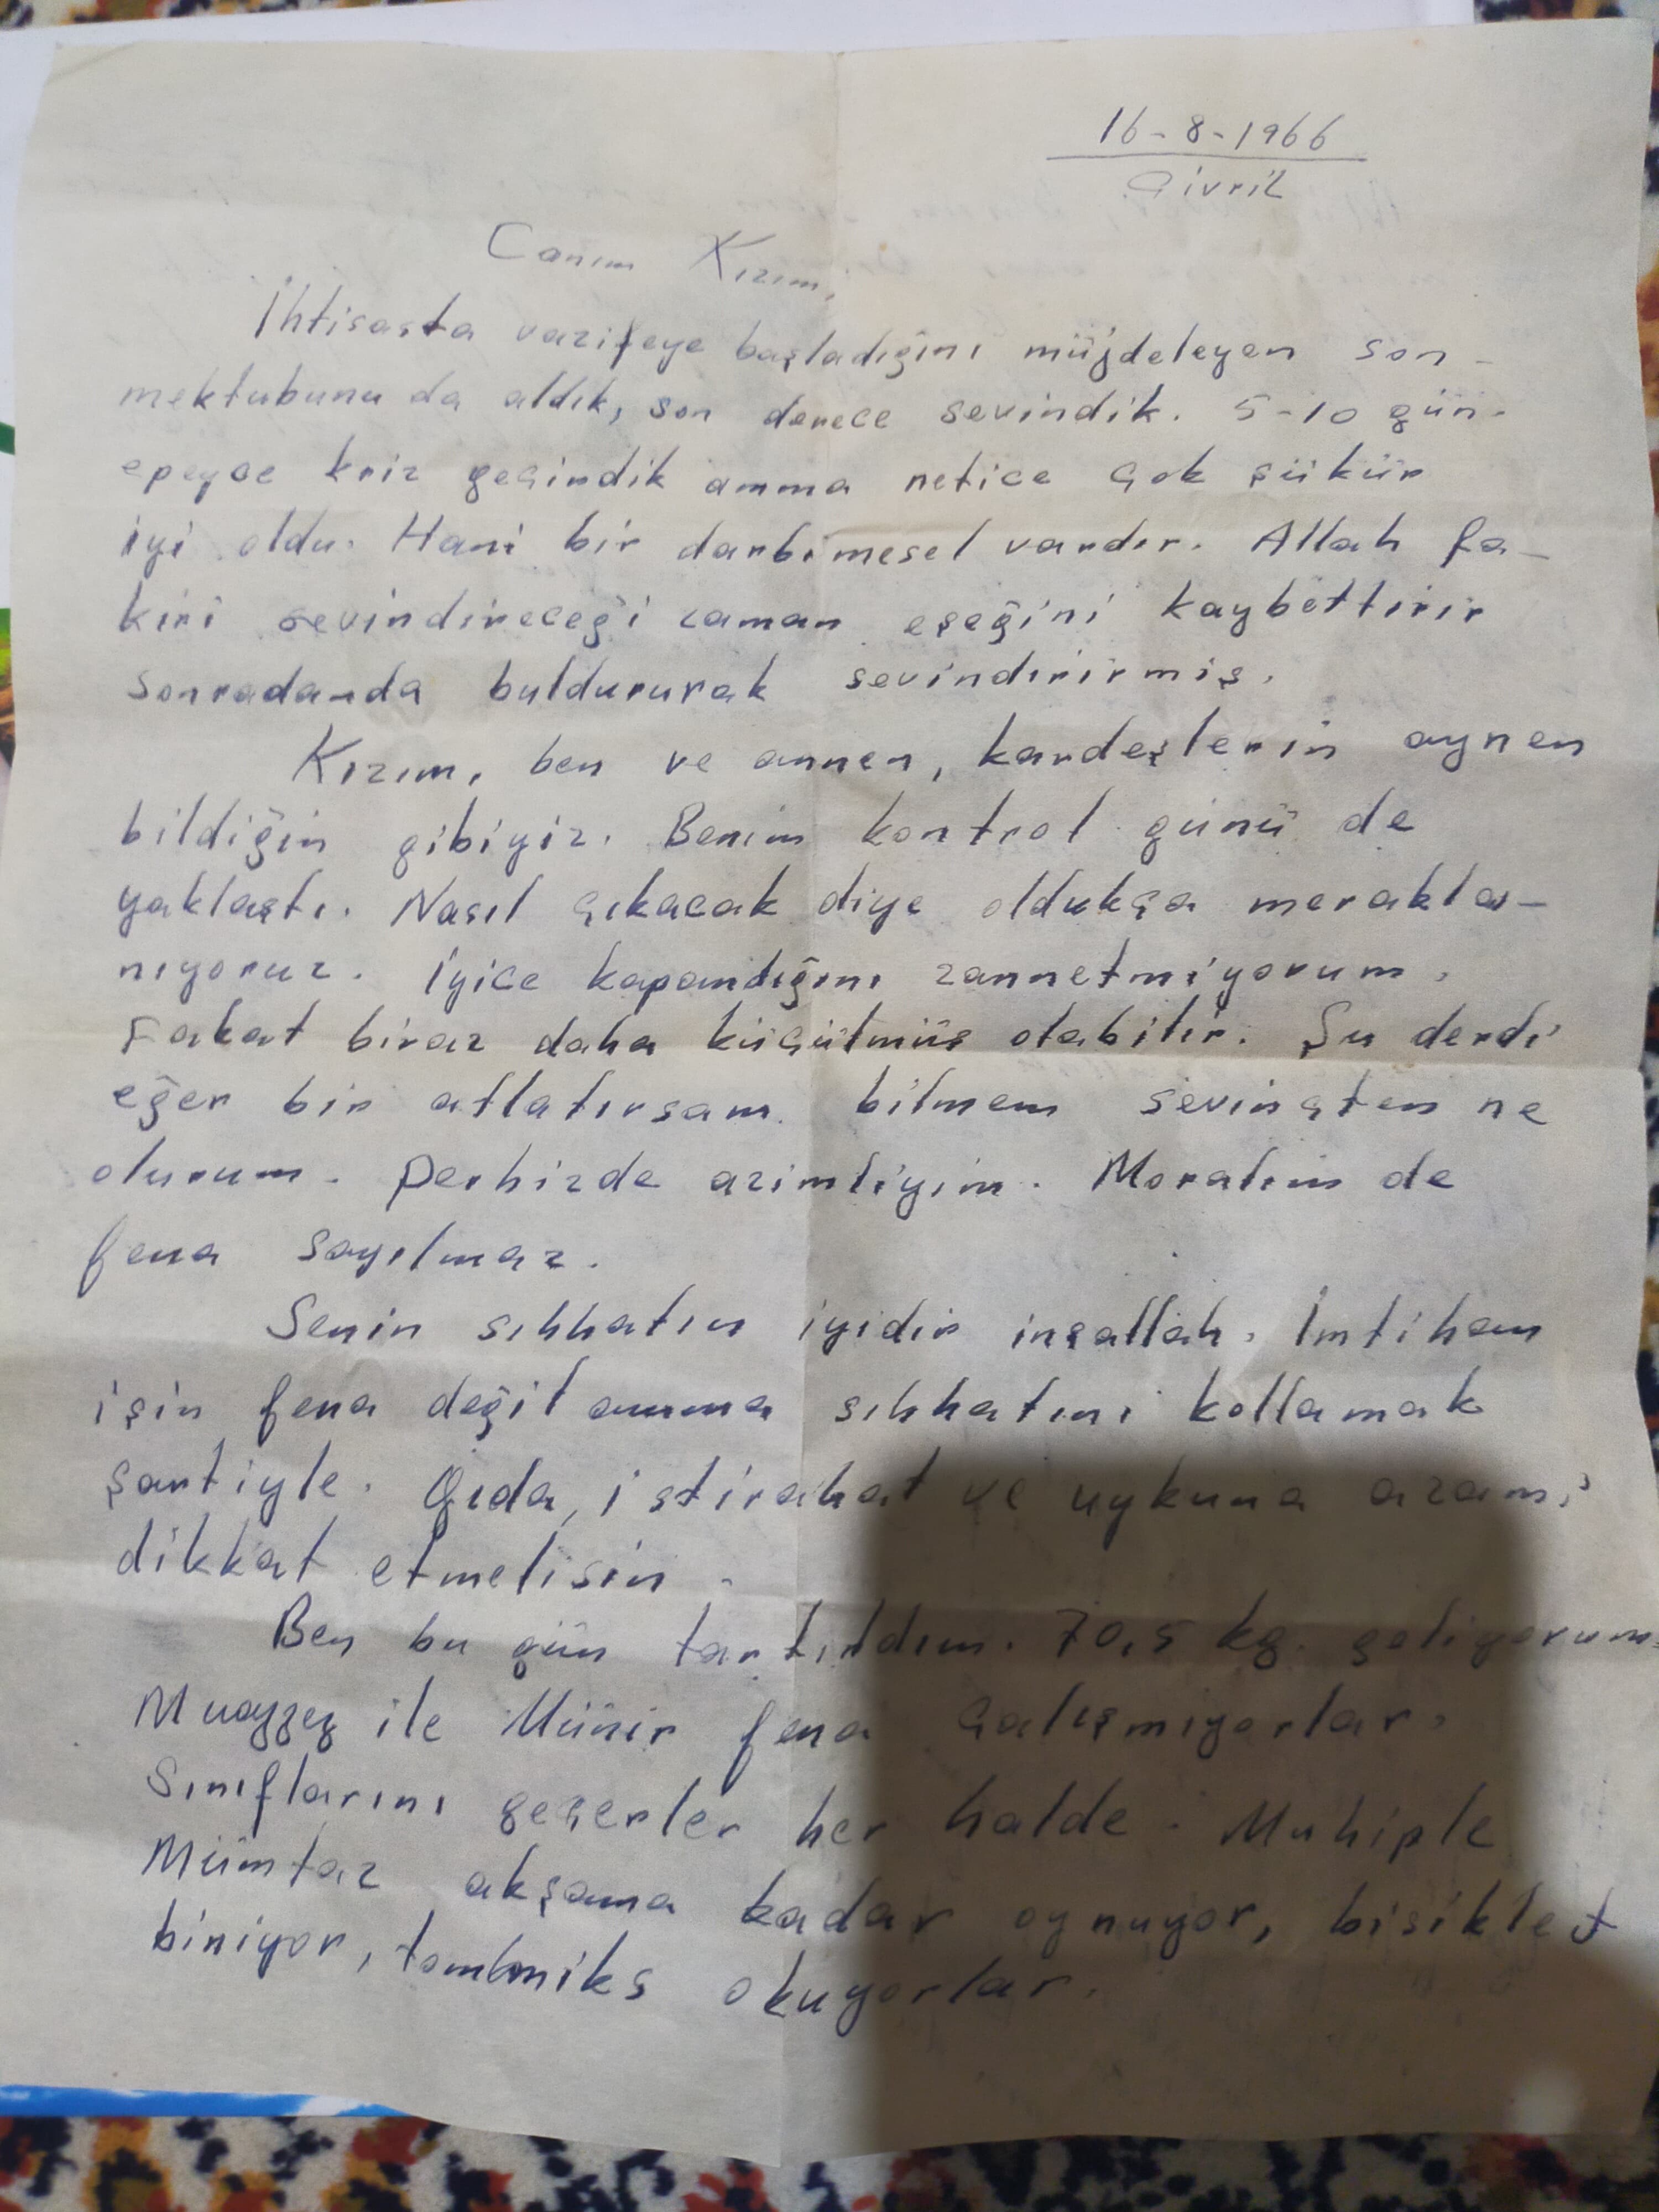 16-8-1966
Çivril
Canım Kızım,
İhtisasta vazifeye başladığını müjdeleyen son
mektubunu da aldık, son derece sevindik. 5-10 gün
epeyce kriz geçirdik amma netice çok şükür
iyi oldu. Hani bir darbımesel vardır. Allah fa-
kiri sevindireceği zaman eşeğini kaybettirir
sonradanda buldururak sevindirirmiş.
Kızım, ben ve annen, kardeşlerin aynen
bildiğin gibiyiz. Benim kontrol günü de
yaklaştı. Nasıl çıkacak diye oldukça merakla-
nıyoruz. İyice kapandığını zannetmiyorum.
Fakat biraz daha küçülmüş olabilir. Şu derdi
eğer bir atlatırsam bilmem sevinçten ne
olurum. Perhizde azimliyim. Moralim de
fena sayılmaz.
Senin sıhhatın iyidir inşallah. İmtihan
için fena değil amma sıhhatını kollamak
şartiyle. Gıda, istirahat ve uykuna azami
dikkat etmelisin.
Ben bu gün tartıldım. 70,5 kg. geliyorum.
Muazzez ile Münir fena çalışmıyorlar.
Sınıflarını geçerler her halde. Muhiple
Mümtaz akşama kadar oynuyor, bisiklet
biniyor, tommiks okuyorlar.